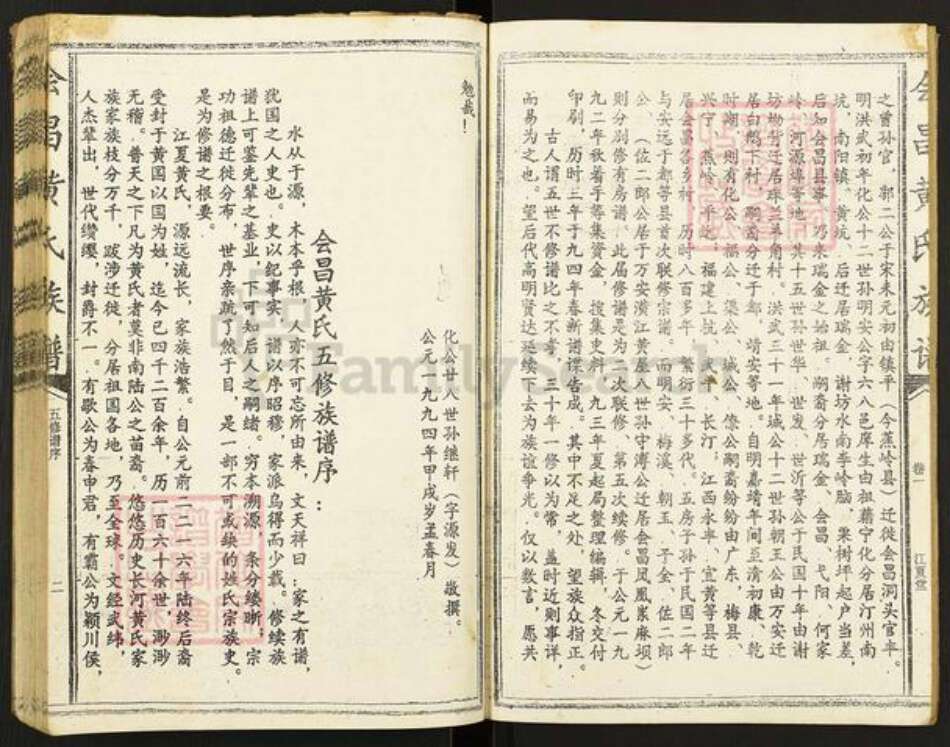 会昌黄氏族谱
卷一
江夏堂
之曾孙官，郭二公于宋末元初由镇平（今蕉岭县）迁徙会昌洞头官丰。
明洪武初年化公十二世孙明安公字六八邑庠生由祖籍宁化分居汀州南
坑，南阳镇、黄坑，后迁居瑞金，谢坊水南李岭脑，栗树坪起户当差，
后如会昌县事，乃来瑞金之始祖。嗣裔分居瑞金、会昌、弋阳、何家
岭、河源埠等地，其十五世孙世华、世发、世沂等公于民国十年由谢
坊坳背迁居珠兰羊角村。洪武三十一年城公十二世孙朝玉公由万安迁
居白鹅下村，嗣裔分迁于都，靖安等地。自明嘉靖年间至清初康、乾
时期，则有化公、福公、渠公、城公、僚公嗣裔纷纷由广东，梅县、
兴宁、蕉岭、平远，福建上杭、武平、长汀，江西永丰、宜黄等县迁
居会昌各乡村，历时八百多年，繁衍三十多代。五房子孙于民国二年
与安远于都等县首次联修宗谱。而明安、梅溪、朝玉、子全、佐二郎
公、（佐二郎公居于万安潢江黄屋八世孙守溥公迁居会昌凤凰岽麻坝）
则分别修有房谱，此届修谱是为二次联修、第五次续修。于公元一九
九二年秋着手筹集资金，搜集史料，九三年夏起局整理编辑，冬交付
印刷，历时三年于九四年春新谱谍告成。其中不足之处，望族众指正。
古人谓五世不修谱比之不孝，三十年一修以为常，盖时近则事详，
而易为之也。望后代高明贤达延续下去为族谊争光。仅以数言，愿共
勉哉！
化公廿八世孙继轩（字源发）敬撰。
公元一九九四年甲戌岁孟春月
会昌黄氏五修族谱序：
水从于源，木本乎根，人亦不可忘所由来，文天祥曰：家之有谱，
犹国之人史也。史以纪事实，谱以序昭穆，家派乌得而少载。修续族
谱上可鉴先辈之基业，下可知后人之嗣绪。穷本溯源，条分缕晰；宗
功祖德迁徙分布，世序亲疏了然于目，是一部不可或缺的姓氏宗族史。
是为修谱之根要。
江夏黄氏，源远流长，家族浩繁。自公元前二二一六年陆终后裔
受封于黄国以国为姓，迄今已四千二百余年，历一百六十余世，渺渺
无稽。普天之下凡为黄氏者莫非南陆公之苗裔。悠悠历史长河黄氏家
族家族枝分万千，跋涉迁徙，分居祖国各地，乃至全球。文经武纬，
人杰辈出，世代缵缨，封爵不一。有歇公为春申君，有霸公为颖川侯，
会昌黄氏族谱
五修谱序
二
FamilySearch